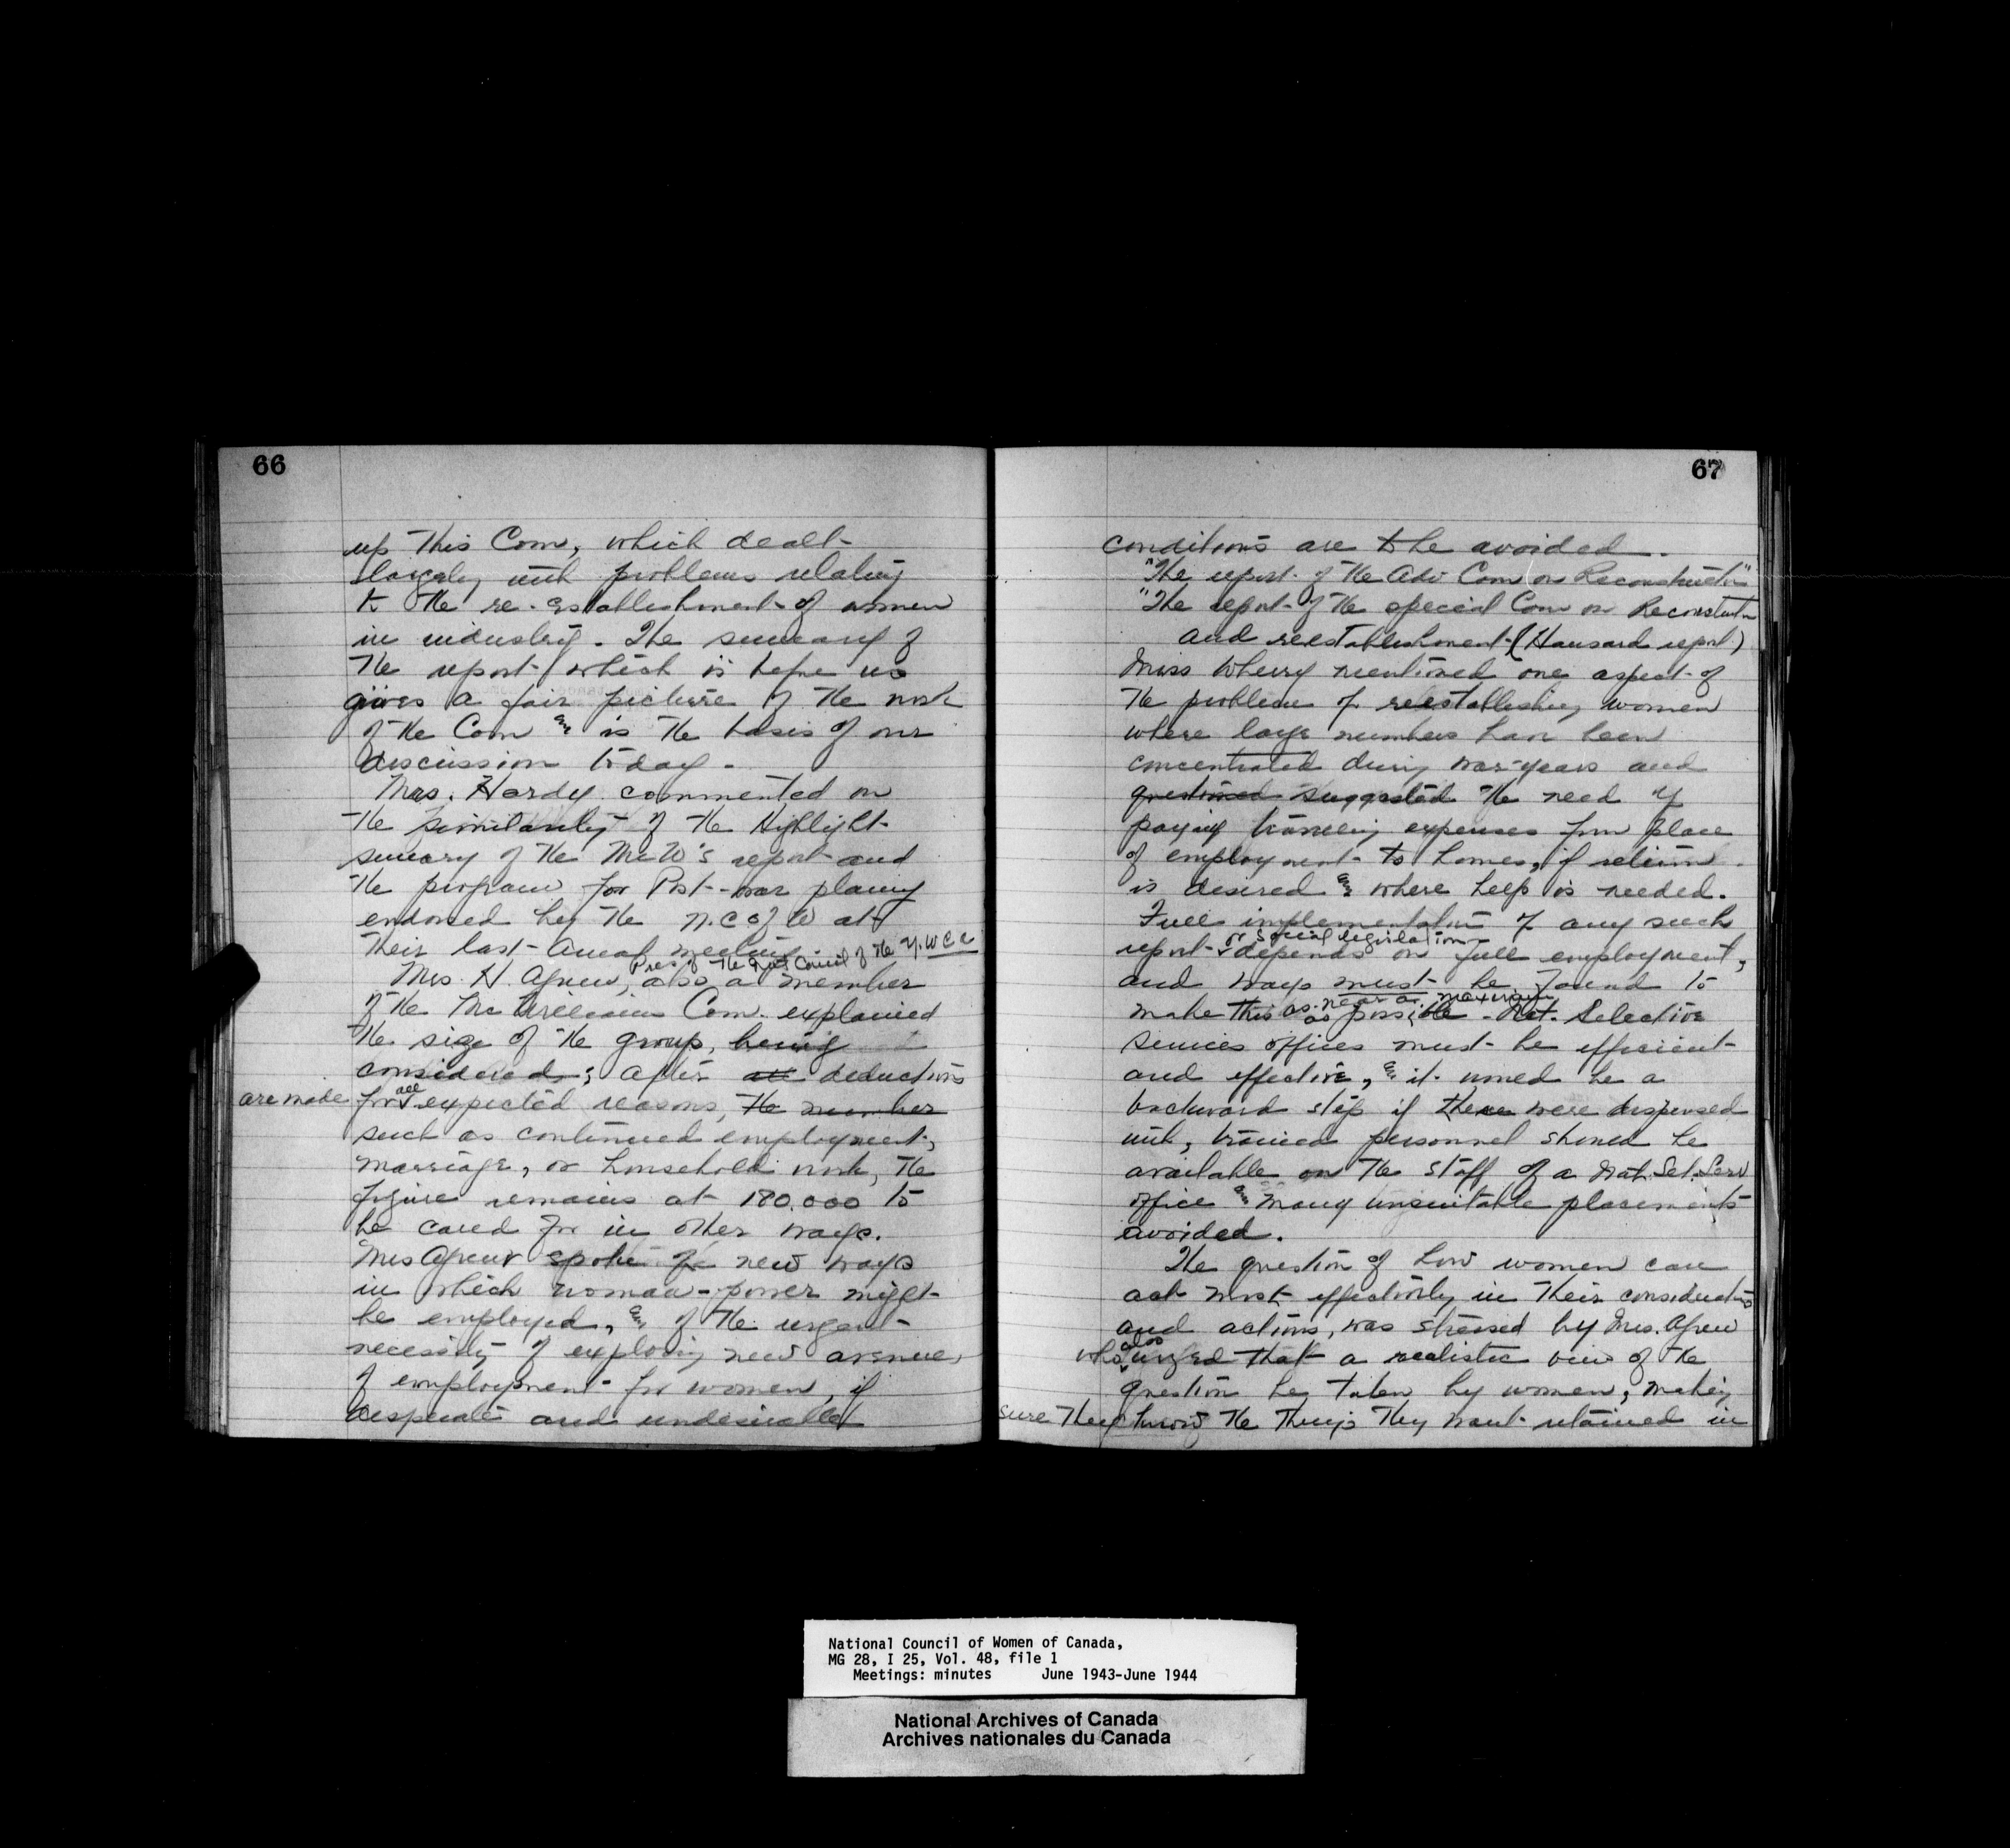 66
up this Com, which dealt
largely with problems relating
to the re-establishment of women
in industry. The summary of
the report which is before us
gives a fair picture of the work
of the Com & is the basis of our
discussion today.
Mrs. Hardy commented on
the similarity of the Highlight
summary of the McW's report and
the program for Post-war planning
endorsed by the N.C of W at
their last Annual meeting.
Pres of the Nat Council of the Y.W.C.A
Mrs. H. Agnew, also a member
of the McWilliams Com. explained
the size of the group, being
considered; after all deductions
are made for all expected reasons, the number
such as continued employment,
marriage, or household work, the
figure remains at 180.000 to
be cared for in other ways.
Mrs Agnew spoke of new ways
in which woman-power might
be employed, & of the urgent
necessity of exploring new avenues
of employment for women, if
desperate and undesirable
67
conditions are to be avoided.
"The report of the Adv Com on Reconstruction"
"The report of the special Com on Reconstruction
and reestablishment (Hansard report)
Miss Wherry mentioned one aspect of
the problem of reestablishing women
where large numbers have been
concentrated during war-years and
questioned suggested the need of
paying traveling expenses from place
of employment to homes, if return
is desired & where help is needed.
Full implementation of any such
or social legislation
report depends on full employment,
and ways must be found to
near a maximum
make this as as possible - Nat. Selective
Services offices must be efficient
and effective, & it would be a
backward step if these were dispensed
with, trained personnel should be
available on the staff of a Nat. Sel. Serv
office & many unsuitable placements
avoided.
The question of how women can
act most effectively in their considerations
and actions, was stressed by Mrs. Agnew
who also urged that a realistic view of the
question be taken by women, making
sure they know the things they want retained in
National Council of Women of Canada,
MG 28, I 25, Vol. 48, file 1
Meetings: minutes June 1943-June 1944
National Archives of Canada
Archives nationales du Canada